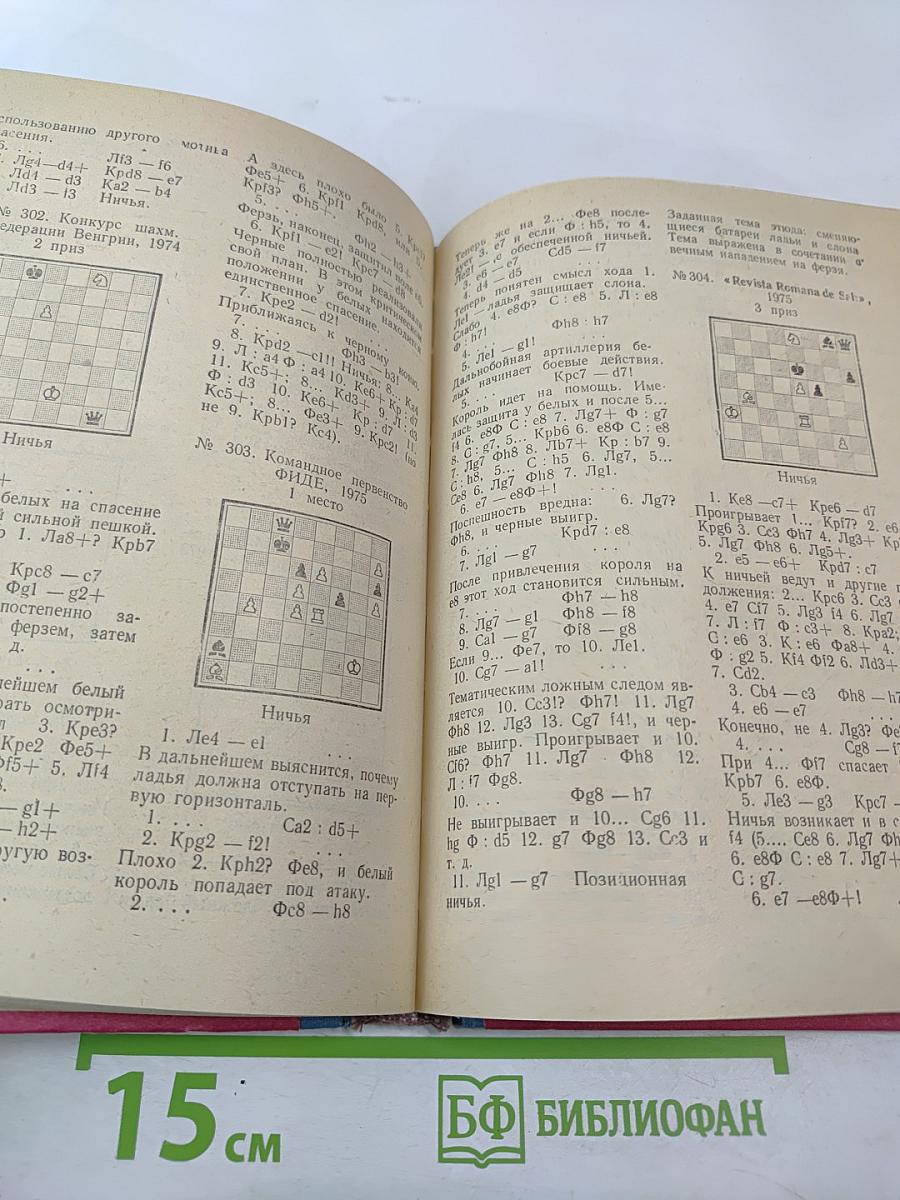 спользованию другого мотива
асения.
Лf3 — f6
Лg4—d4+ Крd8 — e7
Лd4 — d3 Ка2 — b4
Лd3 — f3 Ничья.
№ 302. Конкурс шахм.
едерации Венгрии, 1974
2 приз
Ничья
белых на спасение
й сильной пешкой.
о 1. Ла8+? Крb7
Крс8 — с7
Фg1 — g2+
постепенно за-
ферзем, затем
д.
нейшем белый
рать осмотри-
л 3. Кре3?
Кре2 Фе5+
Фf5+ 5. Лf4
— g1+
— h2+
ругую воз-
А здесь плохо было 5. Кре1?
Фе5+ 6. Крf1 Крd8, или 5.
Крf3? Фh5+.
5. . . . Фh2 — h3+
Ферзь, наконец, защитил поле d3.
6. Крf1 — e2! Крс7 — d8
Черные полностью реализовали
свой план. В этом критическом
положении у белых находится
единственное спасение.
7. Кре2 — d2!
Приближаясь к черному коню.
7. . . . Фh3 — b3!
8. Крd2 — c1!!! Ничья: 8... К:a4
9. Л : а4 Ф : а4 10. Ке6+ Кр : d7
11. Кс5+; 8... Кd3+ 9. Л : d3
Ф : d3 10. Ке6+ Кр : d7 11.
Кс5+; 8... Фе3+ 9. Крс2! (но
не 9. Крb1? Кс4).
№ 303. Командное первенство
ФИДЕ, 1975
1 место
Ничья
1. Ле4 — e1 . . .
В дальнейшем выяснится, почему
ладья должна отступать на пер-
вую горизонталь.
1. . . . Са2 : d5+
2. Крg2 — f2! . . .
Плохо 2. Крh2? Фе8, и белый
король попадает под атаку.
2. . . . Фс8 — h8
Теперь же на 2... Фе8 после-
дует 3. е7 и если Ф : h5, то 4.
Ле2! — с обеспеченной ничьей.
3. е6 — е7 Сd5 — f7
4. d4 — d5 . . .
Теперь понятен смысл хода 1.
Ле1 — ладья защищает слона.
Слабо 4. е8Ф? С : е8 5. Л : е8
Ф : h7!
4. . . . Фh8 : h7
5. Ле1 — g1! . . .
Дальнобойная артиллерия бе-
лых начинает боевые действия.
5. . . . Крс7 — d7!
Король идет на помощь. Име-
лась защита у белых и после 5...
f4 6. е8Ф С : е8 7. Лg7+ Ф : g7
8. С : g7, 5... Крb6 6. е8Ф С : е8
7. Лg7 Фh8 8. Лb7+ Кр : b7 9.
С : h8, 5... С : h5 6. Лg7, 5...
Се8 6. Лg7 Фh8 7. Лg1.
6. е7 — е8Ф+! . . .
Поспешность вредна: 6. Лg7?
Фh8, и черные выигр.
6. . . . Крd7 : е8
7. Лg1 — g7 . . .
После привлечения короля на
е8 этот ход становится сильным.
7. . . . Фh7 — h8
8. Лg7 — g1 Фh8 — f8
9. Са1 — g7 Фf8 — g8
Если 9... Фе7, то 10. Ле1.
10. Сg7 — a1! . . .
Тематическим ложным следом яв-
ляется 10. Сс3!? Фh7! 11. Лg7
Фh8 12. Лg3 13. Сg7 f4!, и чер-
ные выигр. Проигрывает и 10.
Сf6? Фh7 11. Лg7 Фh8 12.
Л : f7 Фg8.
10. . . . Фg8 — h7
Не выигрывает и 10... Сg6 11.
hg Ф : d5 12. g7 Фg8 13. Сс3 и
т. д.
11. Лg1 — g7 Позиционная
ничья.
Заданная тема этюда: сменяю-
щиеся батареи ладьи и слона
Тема выражена в сочетании с
вечным нападением на ферзя.
№ 304. «Revista Romana de Sah»,
1975
3 приз
Ничья
1. Ке8 —с7+ Кре6 — d7
Проигрывает 1... Крf7? 2. е6
Крg6 3. Сс3 Фh7 4. Лg3+ Кр
5. Лg7 Фh8 6. Лg5+.
2. е5 — е6+ Крd7 : с7
К ничьей ведут и другие п
должения: 2... Крс6 3. Сс3
4. е7 Сf7 5. Лg3 f4 6. Лg7
7. Л : f7 Ф : с3+ 8. Кра2;
С : е6 3. К : е6 Фа8+ 4.
Ф : g2 5. Кf4 Фf2 6. Лd3+
7. Сd2.
3. Сb4 — с3 Фh8 — h7
4. е6 — е7 . . .
Конечно, не 4. Лg3? Фе
4. . . . Сg8 — f7
При 4... Фf7 спасает
Крb7 6. е8Ф.
5. Ле3 — g3 Крс7 —
Ничья возникает и в с
f4 (5.... Се8 6. Лg7 Фh
6. е8Ф С : е8 7. Лg7+
С : g7.
6. е7 —е8Ф+!
15 см
БФ БИБЛИОФАН